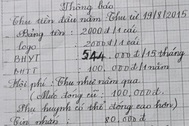 Thông báo
Thu tiền đầu năm Thứ tư 19/8/2015
- Bảng tên : 2000đ/1 cái
- logo : 2000đ/1 cái
- BHYT 544.000đ/15 tháng
- BHTT 100,000đ/năm
- Hội phí : Thu như năm qua
( Mức đóng từ : 100,000đ.
Phụ huynh có thể đóng cao hơn )
- Tin nhắn : 80,000đ